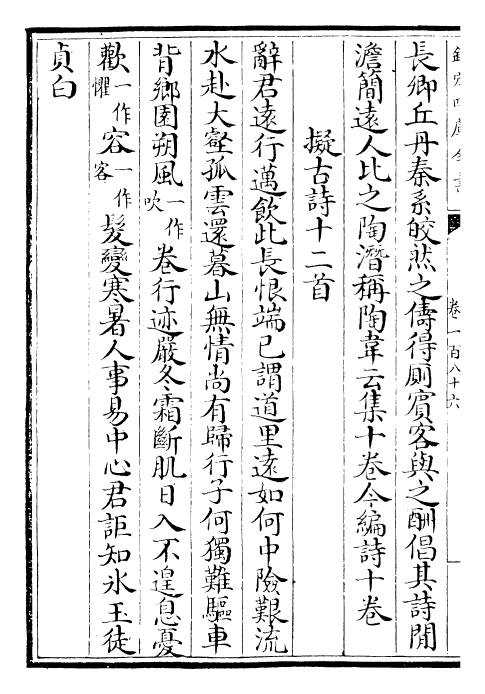 欽定四庫全書
卷一百八十六
長卿丘丹秦系皎然之儔得厠賓客與之酬倡其詩閒
澹簡遠人比之陶潛稱陶韋云集十卷今編詩十卷
擬古詩十二首
辭君遠行邁飲此長恨端已謂道里遠如何中險艱流
水赴大壑孤雲還暮山無情尚有歸行子何獨難驅車
背鄉園朔風一作吹卷行迹嚴冬霜斷肌日入不遑息憂
歡一作懼容一作客髮變寒暑人事易中心君詎知氷玉徒
貞白